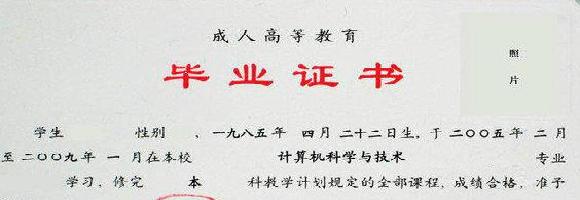 成人高等教育
毕业证书
照
片
学生 性别 、一九八五年 四月二十二日生。于二〇〇五年 二月
至二〇〇九年 一月在本校 计算机科学与技术 专业
学习，修完 本 科教学计划规定的全部课程，成绩合格，准予